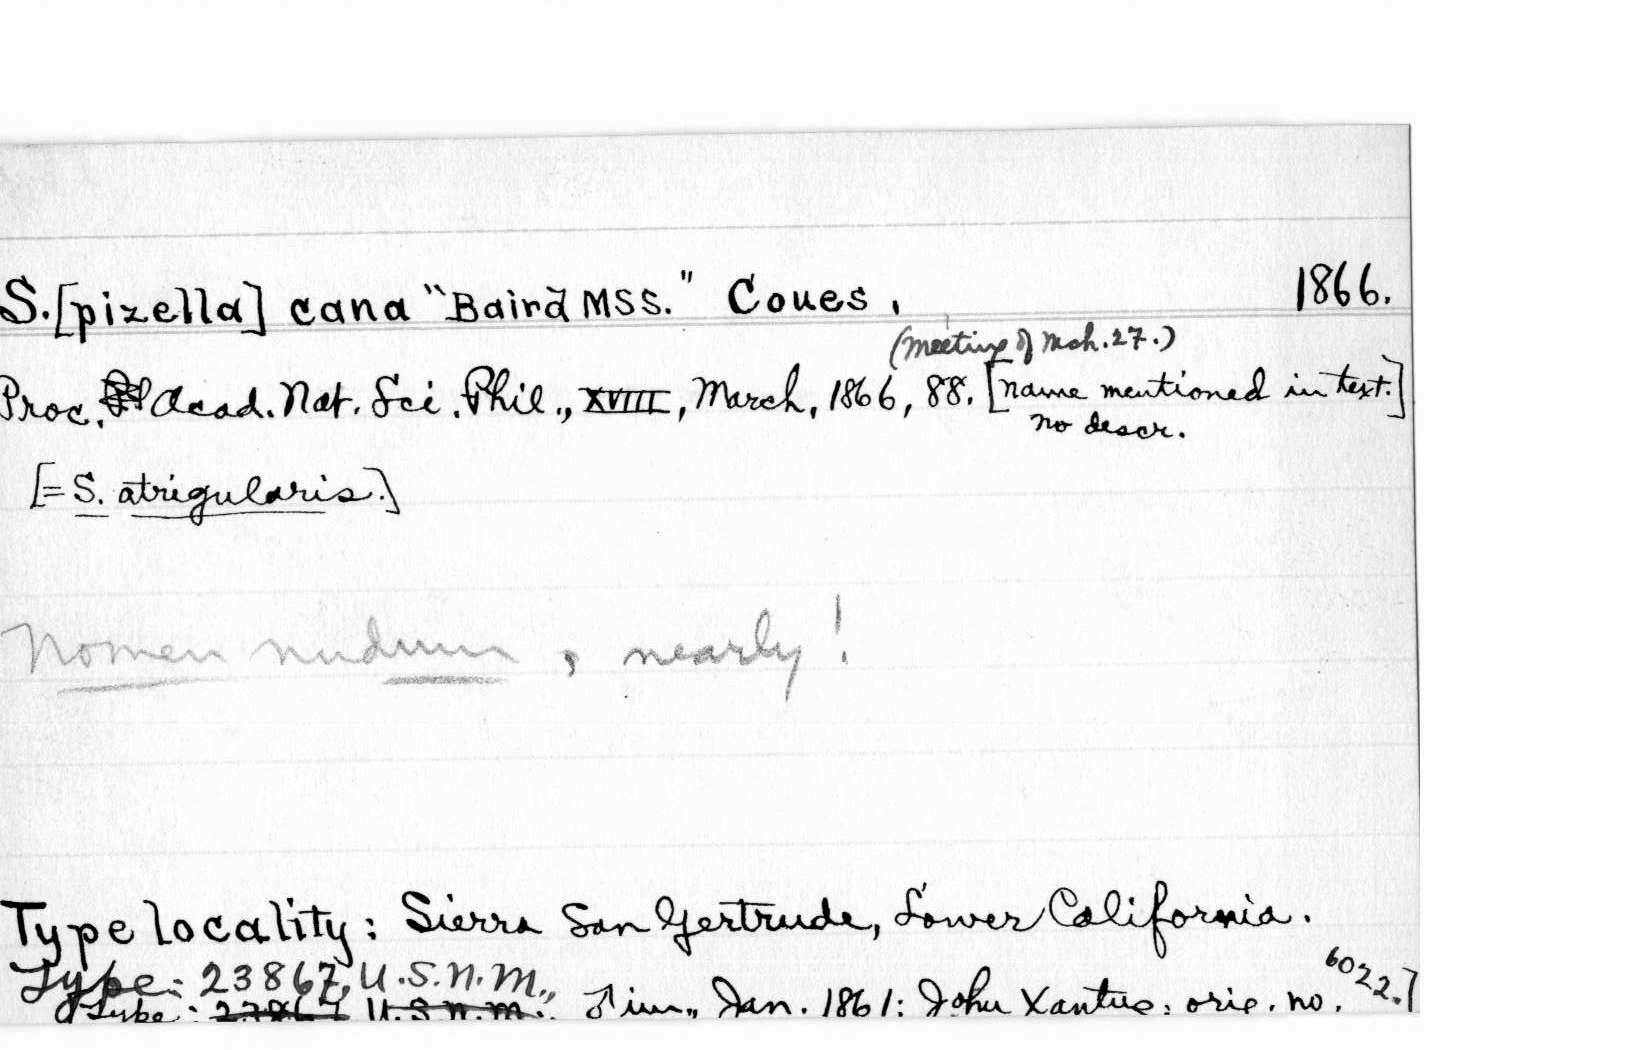 S.[pizella] cana "Baird MSS." Coues, 1866.
(meeting of Mch. 27.)
Proc. Acad. Nat. Sci. Phil., XVIII, March, 1866, 88. [name mentioned in text.]
no descr.
[= S. atrigularis.]
Nomen nudum, nearly!
Type locality: Sierra San Gertrude, Lower California.
Type: 23867, U.S.N.M.,
Type: 23867 U.S.N.M., ♂ im., Jan. 1861: John Xantus: orig. no. 6022.]